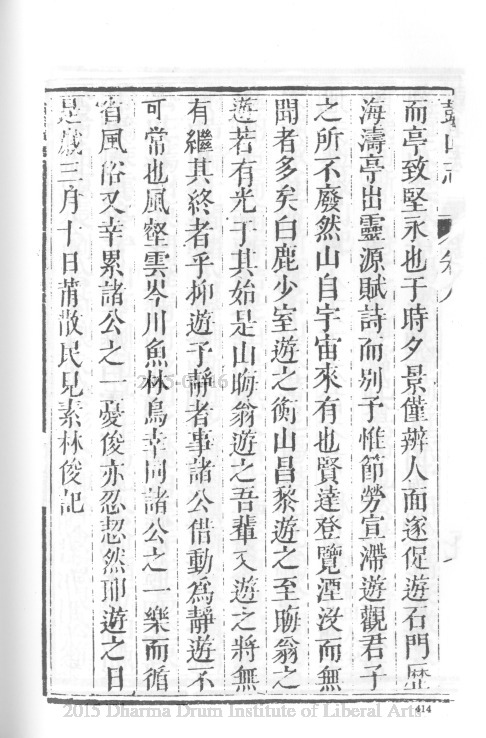 鼓山志 卷八
而亭致堅永也于時夕景僅辨人面遂促遊石門歷
海濤亭出靈源賦詩而別予惟節勞宣滯遊觀君子
之所不廢然山自宇宙來有也賢達登覽湮沒而無
聞者多矣白鹿少室遊之衡山昌黎遊之至晦翁之
遊若有光于其始是山晦翁遊之吾輩又遊之將無
有繼其終者乎抑遊予靜者事諸公借動為靜遊不
可常也風壑雲岑川魚林鳥幸同諸公之一樂而循
省風俗又幸累諸公之一憂俊亦忍恝然耶遊之日
是歲三月十日莆散民見素林俊記
2015 Dharma Drum Institute of Liberal Arts
414